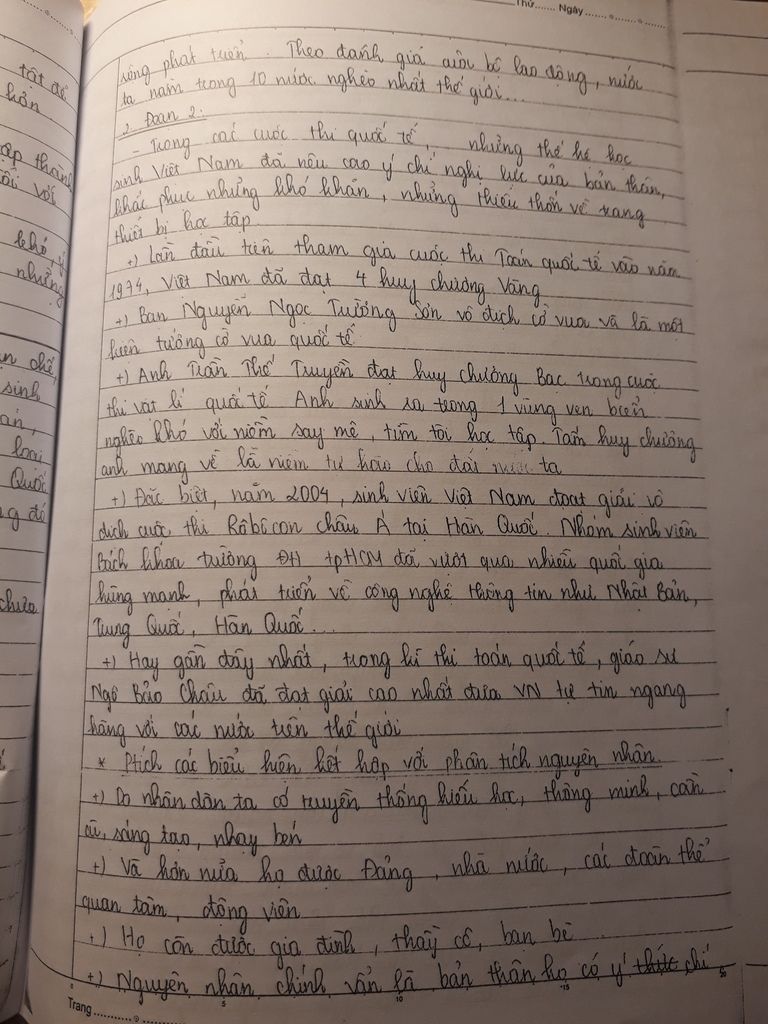 Thứ....... Ngày.......
sống phát triển. Theo đánh giá của bộ lao động, nước
ta nằm trong 10 nước nghèo nhất thế giới...
2. Đoạn 2:
- Trong các cuộc thi quốc tế, những thế hệ học
sinh Việt Nam đã nêu cao ý chí nghị lực của bản thân,
khắc phục những khó khăn, những thiếu thốn về trang
thiết bị học tập
+) Lần đầu tiên tham gia cuộc thi Toán quốc tế vào năm
1974, Việt Nam đã đạt 4 huy chương Vàng
+) Bạn Nguyễn Ngọc Trường Sơn vô địch cờ vua và là một
hiện tượng cờ vua quốc tế
+) Anh Trần Thế Truyền đạt huy chương Bạc trong cuộc
thi vật lí quốc tế Anh sinh ra trong 1 vùng ven biển
nghèo khó với niềm say mê, tìm tòi học tập. Tấm huy chương
anh mang về là niềm tự hào cho đất nước ta
+) Đặc biệt, năm 2004, sinh viên Việt Nam đoạt giải vô
địch cuộc thi Rôbicon châu Á tại Hàn Quốc. Nhóm sinh viên
Bách khoa trường ĐH tpHCM đã vượt qua nhiều quốc gia
hùng mạnh, phát triển về công nghệ thông tin như Nhật Bản,
Trung Quốc, Hàn Quốc...
+) Hay gần đây nhất, trong kì thi toán quốc tế, giáo sư
Ngô Bảo Châu đã đạt giải cao nhất đưa VN tự tin ngang
hàng với các nước trên thế giới
* Ptích các biểu hiện kết hợp với phân tích nguyên nhân.
+) Do nhân dân ta có truyền thống hiếu học, thông minh, cần
cù, sáng tạo, nhạy bén
+) Và hơn nữa họ được Đảng, nhà nước, các đoàn thể
quan tâm, động viên
+) Họ còn được gia đình, thầy cô, bạn bè
+) Nguyên nhân chính vẫn là bản thân họ có ý thức chí
Trang...........
5 10 15 20
tật để
hơn
ập thành
ôi với
khó, ý
những
n chế,
sinh
án,
loại
Quốc
g đó
chưa